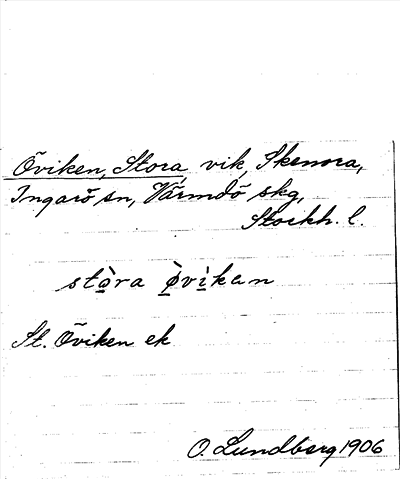 Öviken, Stora, vik, Skenora,
Ingarö sn, Värmdö skg,
Stockh. l.
stò̲ra ø̲̀vì̲kan
St. Öviken ek
O. Lundberg 1906